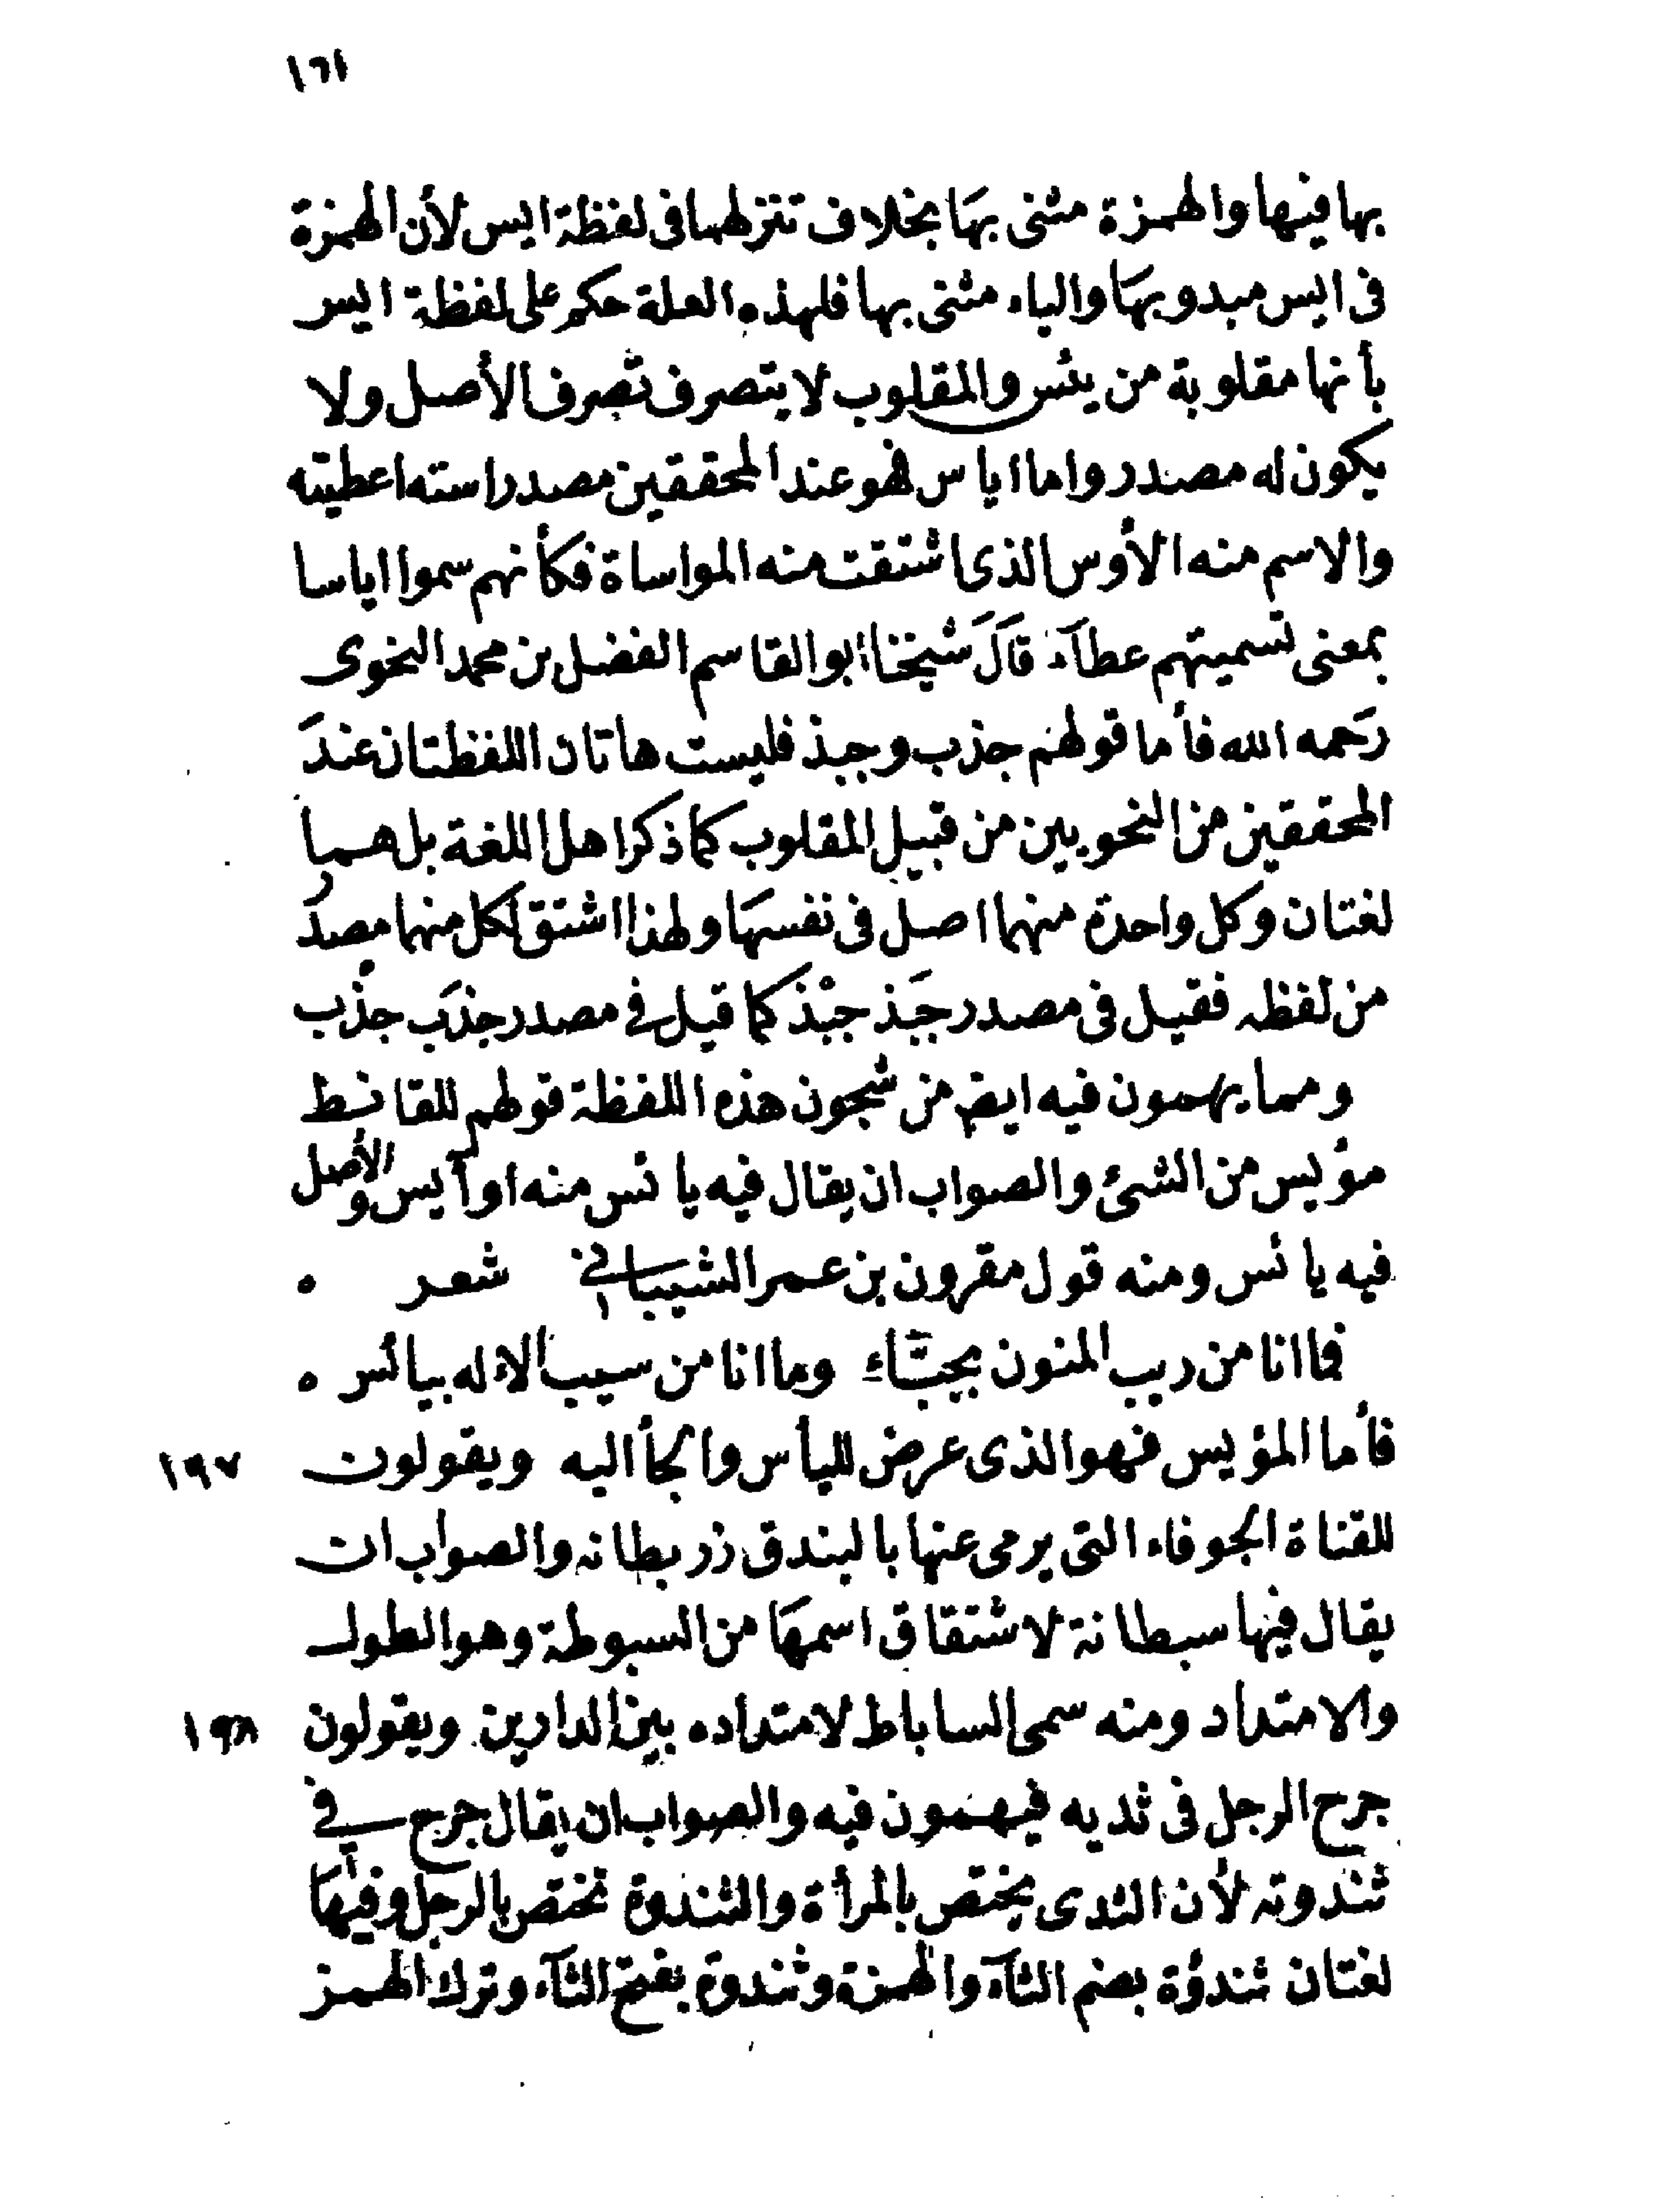 ١٦١
بها فيها والهمزة مثنى بهَا بخلاف تنزلهما فى لفظة ايس لأن الهمزة
فى ايس مبدو بهَا والياء مثنى بها فلهذه العلة حكم على لفظة ايس
بأنها مقلوبة من يئس والمقلوب لا يتصرف تصرف الأصل ولا
يكون له مصدر واما اياس فهو عند المحققين مصدر استه اعطيته
والاسم منه الأوس الذى اشتقت منه المواساة فكأنهم سموا اياسا
بمعنى تسميتهم عطآء قَالَ شيخنا ابو القاسم الفضل بن محمد النحوى
رَحمه الله فأما قولهم جذب وجبذ فليست هاتان اللفظتان عندَ
المحققين من النحويين من قبيل المقلوب كما ذكر اهل اللغة بل هما
لغتان وكل واحدة منهما اصل فى نفسهَا ولهذا اشتق لكل منهما مصدر
من لفظه فقيل فى مصدر جَبذ جبْذ كما قيل فى مصدر جذَب جذْب
ومما يهمون فيه ايض من شجون هذه اللفظة قولهم للقانط
مؤيس من الشئ والصواب ان يقال فيه يائس منه او آيس والأصل
فيه يائس ومنه قول مقرون بن عمر الشيبانى شعر ٥
فما انا من ريب المنون بجبّاء وما انا من سيب الاله بيائس ٥
فأما المؤيس فهو الذى عرض لليأس والجأ اليه ويقولون ١٩٧
للقناة الجوفاء التى يرمى عنها بالبندق زربطانه والصواب ان
يقال فيها سبطانة لاشتقاق اسمهَا من السبوطة وهو الطول
والامتداد ومنه سمى الساباط لامتداده بين الدارين ويقولون ١٩٨
جرح الرجل فى ثديه فيهمون فيه والصواب ان يقال جرح فى
ثندوته لأن الثدى يختص بالمرأة والثندوة تختص بالرجل وفيهَا
لغتان ثندؤة بضم الثآء والهمزة وثندوة بفتح الثآء وترك الهمز